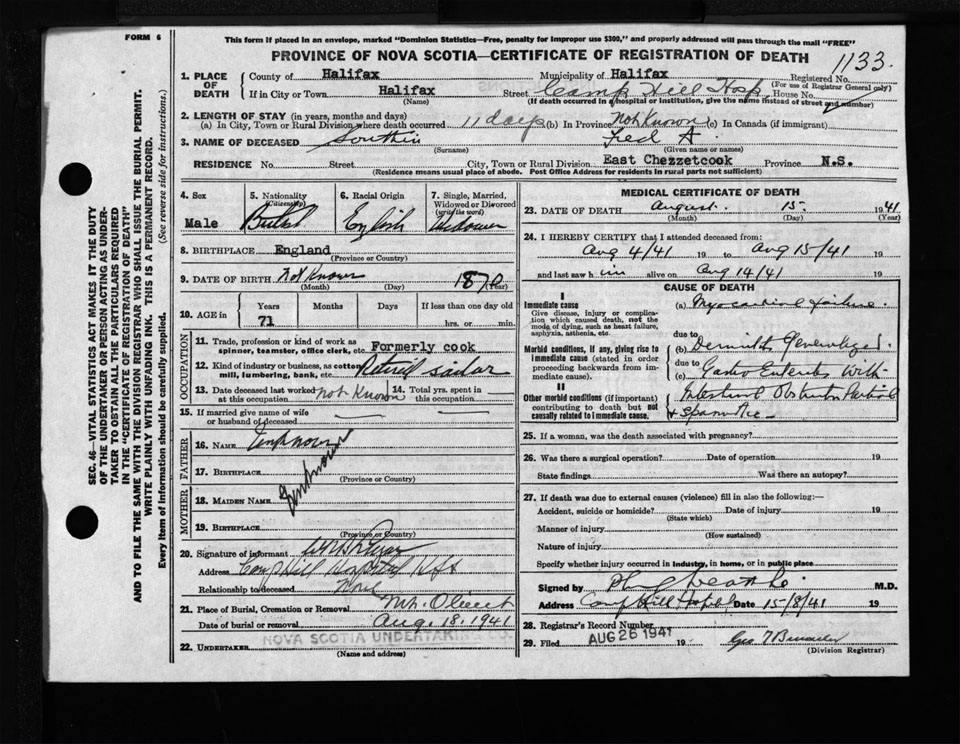 FORM 6
This form if placed in an envelope, marked "Dominion Statistics—Free, penalty for improper use $300," and properly addressed will pass through the mail "FREE"
PROVINCE OF NOVA SCOTIA—CERTIFICATE OF REGISTRATION OF DEATH
1133
1. PLACE OF DEATH
County of Halifax Municipality of Halifax Registered No.
(For use of Registrar General only)
If in City or Town Halifax Street Camp Hill Hosp House No.
(Name) (If death occurred in a hospital or institution, give the name instead of street and number)
2. LENGTH OF STAY (in years, months and days)
(a) In City, Town or Rural Division where death occurred 11 days (b) In Province Not Known (c) In Canada (if immigrant)
3. NAME OF DECEASED Southin Fred A.
(Surname) (Given name or names)
RESIDENCE No. Street City, Town or Rural Division East Chezzetcook Province N.S.
(Residence means usual place of abode. Post Office Address for residents in rural parts not sufficient)
4. Sex
Male
5. Nationality
(Citizenship)
6. Racial Origin
English
7. Single, Married, Widowed or Divorced
(write the word)
Widower
8. BIRTHPLACE England
(Province or Country)
9. DATE OF BIRTH Not Known 1870
(Month) (Day) (Year)
10. AGE in
Years Months Days If less than one day
71 hrs. or min.
OCCUPATION
11. Trade, profession or kind of work as spinner, teamster, office clerk, etc Formerly cook
12. Kind of industry or business, as cotton mill, lumbering, bank, etc Retired sailor
13. Date deceased last worked at this occupation not Known
14. Total yrs. spent in this occupation
15. If married give name of wife or husband of deceased
FATHER
16. NAME Unknown
17. BIRTHPLACE
(Province or Country)
MOTHER
18. MAIDEN NAME Unknown
19. BIRTHPLACE
(Province or Country)
20. Signature of informant
Address Camp Hill Hospital Hfx
Relationship to deceased None
21. Place of Burial, Cremation or Removal Mt. Olivet
Date of burial or removal Aug. 18. 1941
NOVA SCOTIA UNDERTAKING CO.
22. UNDERTAKER
(Name and address)
MEDICAL CERTIFICATE OF DEATH
23. DATE OF DEATH August 15 1941
(Month) (Day) (Year)
24. I HEREBY CERTIFY that I attended deceased from:
Aug 4/41 19 to Aug 15/41 19
and last saw him alive on Aug 14/41 19
CAUSE OF DEATH
I
Immediate cause
Give disease, injury or complication which caused death, not the mode of dying, such as heart failure, asphyxia, asthenia, etc.
(a) Myocardial failure
due to
Morbid conditions, if any, giving rise to immediate cause (stated in order proceeding backwards from immediate cause).
(b) Generalized
due to
(c) Gastro Enteritis with
II
Other morbid conditions (if important) contributing to death but not causally related to immediate cause.
Intestinal Obstruction Partial
25. If a woman, was the death associated with pregnancy?
26. Was there a surgical operation? Date of operation 19
State findings Was there an autopsy?
27. If death was due to external causes (violence) fill in also the following:—
Accident, suicide or homicide? Date of injury 19
(State which)
Manner of injury
(How sustained)
Nature of injury
Specify whether injury occurred in industry, in home, or in public place
Signed by M.D.
Address Camp Hill Hospital Date 15/8/41 19
28. Registrar's Record Number
29. Filed AUG 26 1941 19 Geo
(Division Registrar)
SEC. 46—VITAL STATISTICS ACT MAKES IT THE DUTY
OF THE UNDERTAKER OR PERSON ACTING AS UNDER-
TAKER TO OBTAIN ALL THE PARTICULARS REQUIRED
IN THE "CERTIFICATE OF REGISTRATION OF DEATH"
AND TO FILE THE SAME WITH THE DIVISION REGISTRAR WHO SHALL ISSUE THE BURIAL PERMIT.
WRITE PLAINLY WITH UNFADING INK. THIS IS A PERMANENT RECORD.
Every item of information should be carefully supplied. (See reverse side for instructions.)